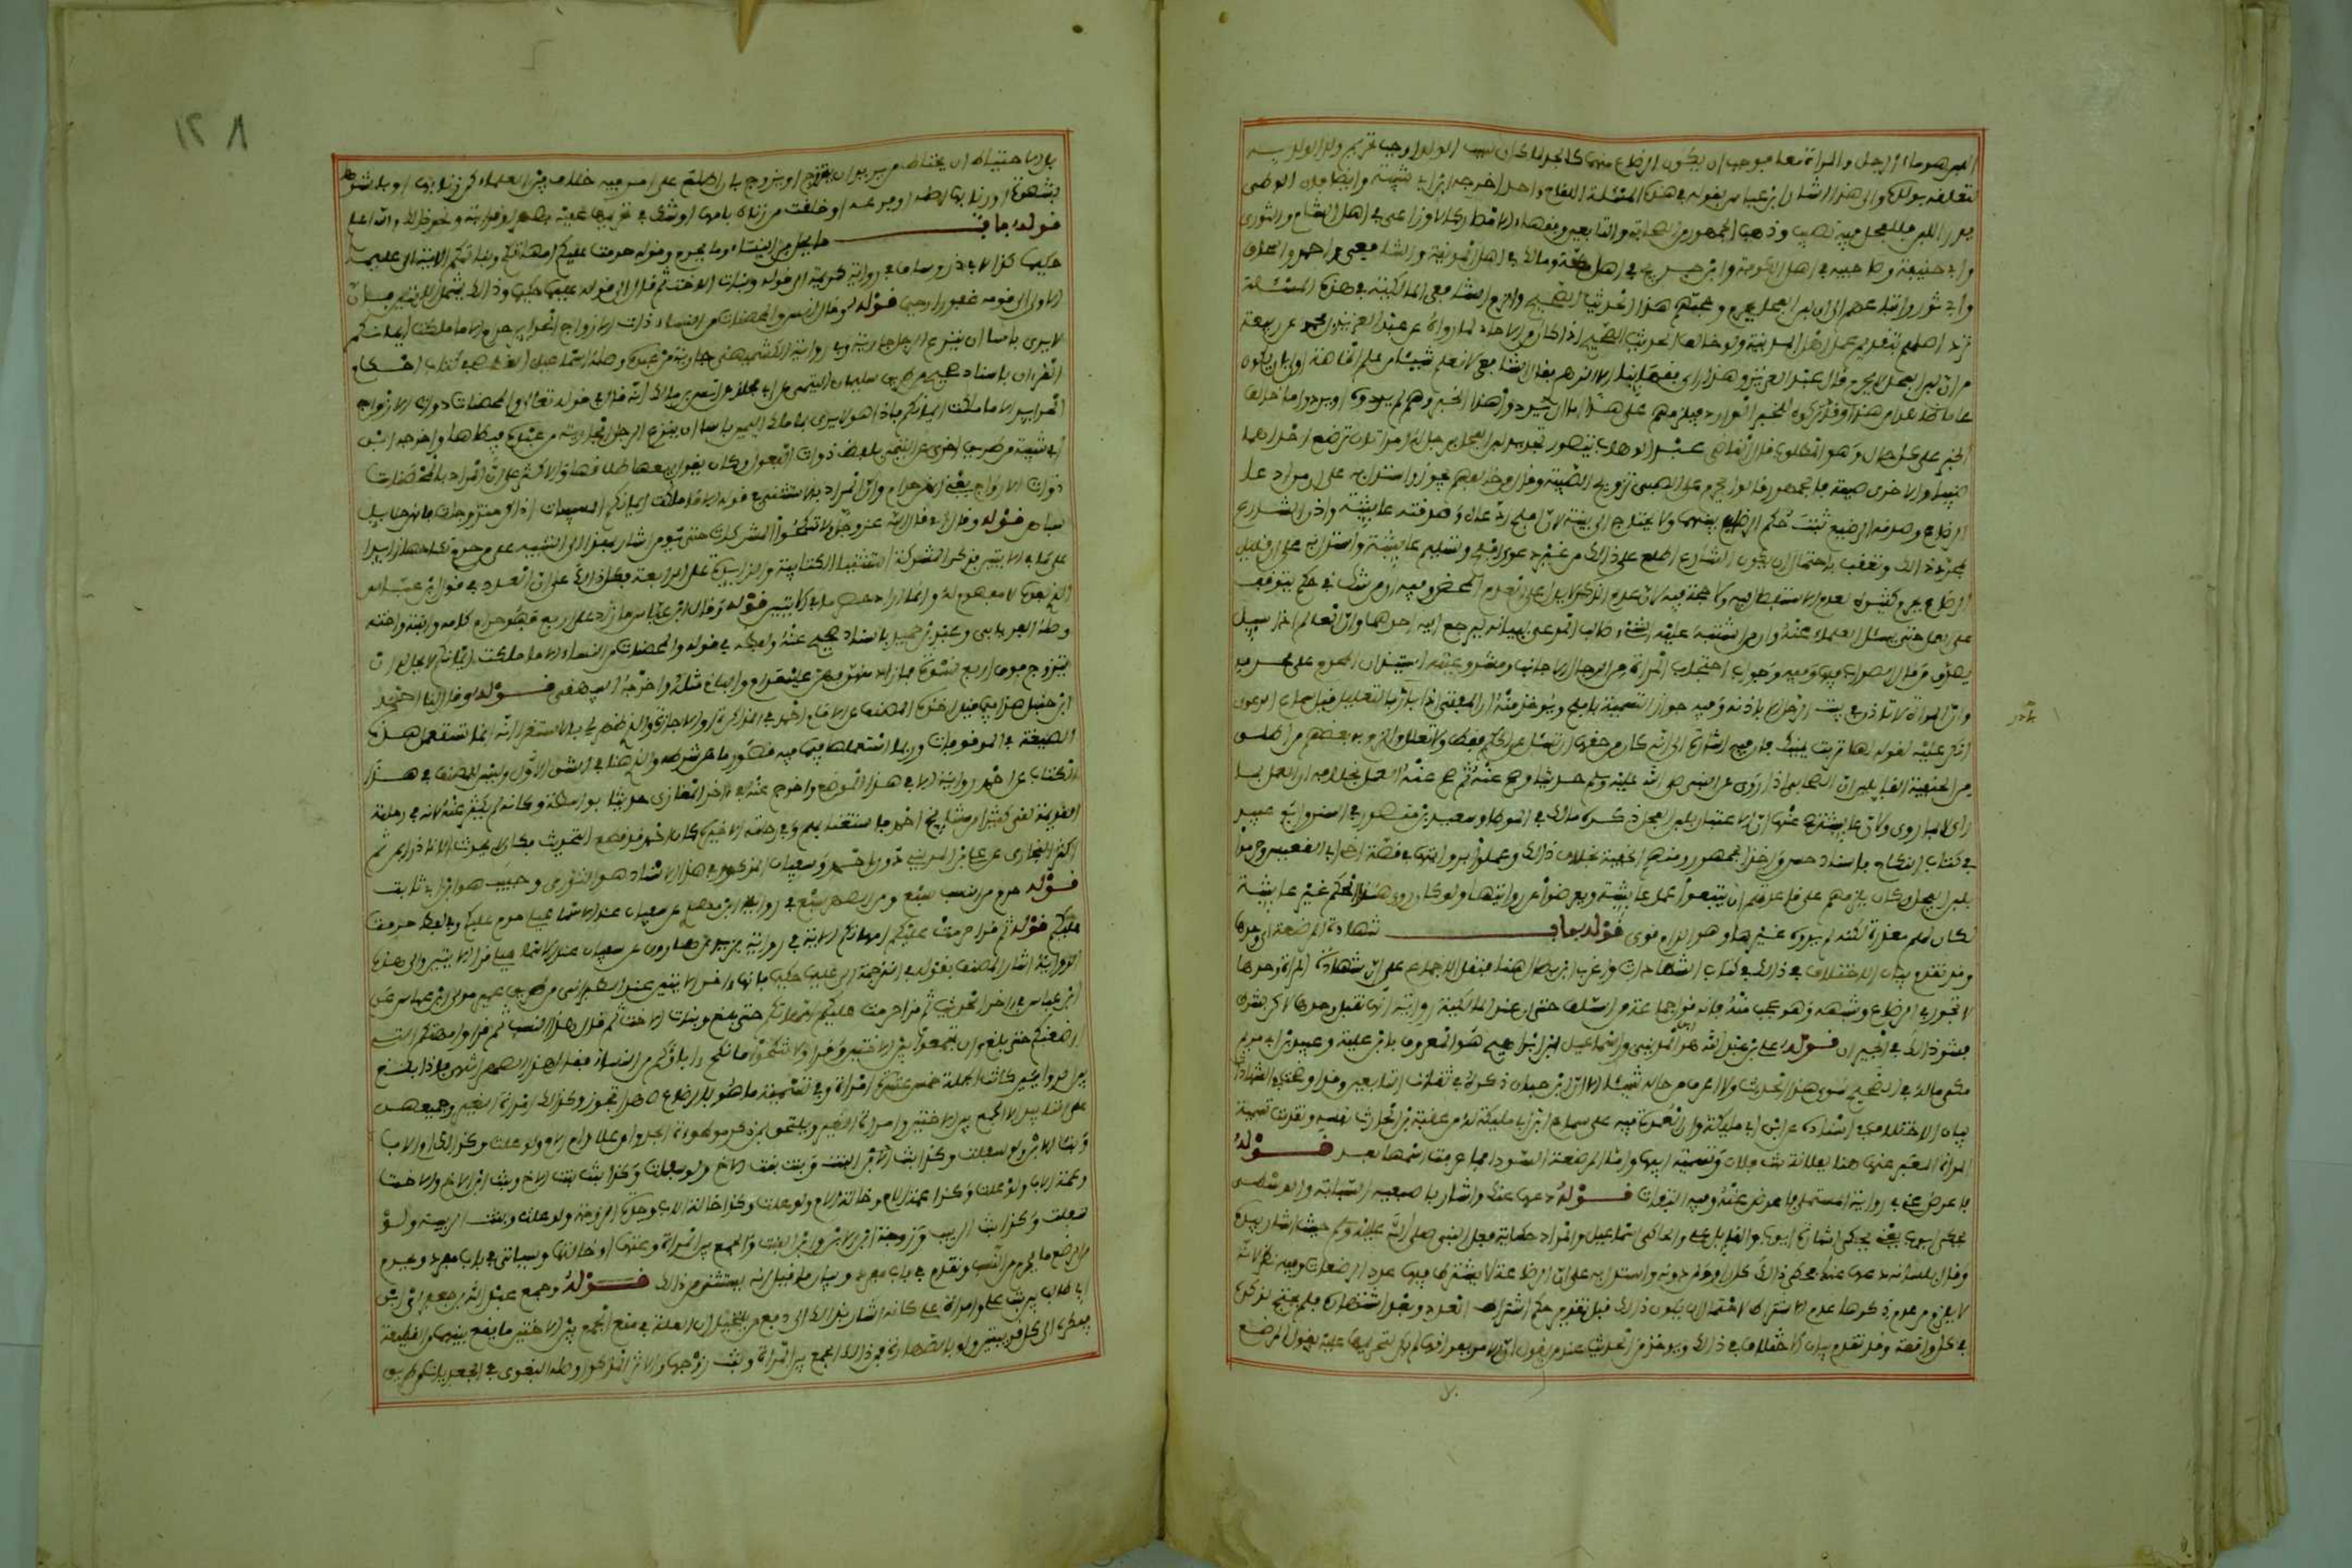 اللبن هو ماء الرجل والمرأة معا فوجب ان يكون الرضاع منهما كالجد لما كان سبب الولد اوجب تحريم ولد الولد به
لتعلقه بولده والى هذا اشار ابن عباس بقوله في هذه المسئلة اللقاح واحد اخرجه ابن ابي شيبة وايضا فان الوطى
يدر اللبن فللفحل فيه نصيب وذهب الجمهور من الصحابة والتابعين وفقهاء الامصار كالاوزاعي في اهل الشام والثوري
وابي حنيفة وصاحبيه في اهل الكوفة وابن جريج في اهل مكة ومالك في اهل المدينة والشافعي واحمد واسحاق
وابي ثور واتباعهم الى ان لبن الفحل يحرم وحجتهم هذا الحديث الصحيح والزم الشافعي المالكية في هذه المسئلة
برد اصلهم بتقديم عمل اهل المدينة ولو خالف الحديث الصحيح اذا كان من الاحاد لما رواه عن عبد العزيز بن محمد عن ربيعة
من ان لبن الفحل لا يحرم قال عبد العزيز وهذا راي فقهائنا الا الزهري فقال الشافعي لا نعلم شيئا من علم الخاصة اولى بان يكون
عاما ظاهرا من هذا وقد تركوه للخبر الوارد فيلزمهم على هذا اما ان يردوا هذا الخبر وهم لم يردوه او يردوا ما خالف
الخبر على كل حال وهو المطلوب قال القاضي عبد الوهاب يتصور تجريد لبن الفحل برجل له امراتان ترضع احداهما
صبيا والاخرى صبية فالجمهور قالوا يحرم على الصبي تزويج الصبية وقال من خالفهم يجوز واستدل به على ان من ادعا
الرضاع وصدقه الرضيع ثبت حكم الرضاع بينهما ولا يحتاج الى بينة لان افلح ادعى وصدقته عايشة واذن الشارع
بمجرد ذلك وتعقب باحتمال ان يكون الشارع اطلع على ذلك من غير دعوى افلح وتسليم عايشة واستدل به على ان قليل
الرضاع يحرم كثيره لعدم الاستفصال فيه ولا حجة فيه لان عدم الذكر لا يدل على العدم المحض وفيه ان من شك في حكم يتوقف
على العمل حتى يسئل العلماء عنه وان من اشتبه عليه الشئ طالب المدعي ببيانه ليرجع اليه احدهما وان العالم اذا سئل
يصدق من قال الصواب فيها وفيه وجوب احتجاب المراة من الرجال الاجانب ومشروعية استيذان المحرم على محرمه
وان المراة لا تاذن في بيت الرجل الا باذنه وفيه جواز التسمية بافلح ويؤخذ منه ان المفتي اذا بادر بالتعليل قبل سماع الفتوى
انكر عليه لقوله لها تربت يمينك فان فيه اشارة الى انه كان من حقها ان تسئل عن الحكم فقط ولا تعلل والزم به بعضهم من اطلق
من الحنفية القايلين ان الصحابي اذا روى عن النبي صلى الله عليه وسلم حديثا وصح عنه ثم صح عنه العمل بخلافه ان العمل بما
راى لا بما روى لان عايشة صح عنها ان لا اعتبار بلبن الفحل ذكره مالك في الموطا وسعيد بن منصور في السنن وابو عبيد
في كتاب النكاح باسناد حسن واخذ الجمهور ومنهم الحنفية بخلاف ذلك وعملوا بروايتها في قصة اخي ابي القعيس وحرموه
بلبن الفحل وكان يلزمهم على قاعدتهم ان يتبعوا عمل عايشة ويعرضوا عن روايتها ولو كان روى هذا الحكم غير عايشة
لكان لهم معذرة لكنه لم يروه غيرها وهو الزام قوي قوله باب شهادة المرضعة اي وحدها
وقد تقدم بيان الاختلاف في ذلك في كتاب الشهادات واغرب ابن بطال هنا فنقل الاجماع على ان شهادة المراة وحدها
لا تجوز في الرضاع وشبهه وهو عجيب منه فانه قول جماعة من السلف حتى ان عند المالكية رواية انها تقبل وحدها لكن بشرط
فشو ذلك في الجيران قوله علي بن عبد الله هو ابن المديني واسماعيل بن ابراهيم هو المعروف بابن علية وعبيد بن ابي مريم
مكي ماله في الصحيح سوى هذا الحديث ولا اعرف من حاله شيئا الا ان ابن حبان ذكره في ثقات التابعين وقد اوضحت في الشهادات
بيان الاختلاف في اسناده على ابن ابي مليكة وان العمدة فيه على سماع ابن ابي مليكة له من عقبة بن الحارث نفسه وتقدمت تسمية
المراة المعبر عنها هنا بفلانة بنت فلان وتسمية ابيها وامها المرضعة السوداء فما عرفت اسمها بعد قوله
فاعرض عني في رواية المستملي فاعرض عنه وفيه التفات قوله دعها عنك واشار باصبعيه السبابة والوسطى
يحكي ايوب يعني يحكي اشارة ايوب والقايل علي والحاكي اسماعيل والمراد حكاية فعل النبي صلى الله عليه وسلم حيث اشار بيده
وقال بلسانه دعها عنك فحكى ذلك كل راو لمن دونه واستدل به على ان الرضاعة لا يشترط فيها عدد الرضعات وفيه نظر لانه
لا يلزم من عدم ذكرها عدم الاشتراط لاحتمال ان يكون ذلك قبل تقرير حكم اشتراط العدد او بعد اشتهاره فلم يحتج لذكره
في كل واقعة وقد تقدم بيان الاختلاف في ذلك ويؤخذ من الحديث عند من يقول ان الامر بفراقها لم يكن لتحريمها عليه بقول المرضعة
بل للاحتياط ان يحتاط من يريد ان يتزوج او يزوج بامراة اطلع على امر فيه خلاف بين العلماء كمن زنى بها او باشرها
بشهوة او زنى بها اصله او فرعه او خلقت من زناه بامها او شك في تحريمها عليه بصهر او قرابة ونحو ذلك والله اعلم
قوله باب ما يحل من النساء وما يحرم وقوله حرمت عليكم امهاتكم وبناتكم الاية الى عليما
حكيما كذا لابي ذر وساق في رواية كريمة الى قوله وبنات الاخت ثم قال الى قوله عليما حكيما وذلك يشمل الايتين فان
الاولى الى قوله غفورا رحيما قوله وقال انس والمحصنات من النساء ذوات الازواج الحراير حرام الا ما ملكت ايمانكم
لا يرى باسا ان ينزع الرجل جارية وفي رواية الكشميهني جاريته من عبده وصله اسماعيل القاضي في كتاب احكام
القران باسناد صحيح من طريق سليمان التيمي عن ابي مجلز عن انس بن مالك انه قال في قوله تعالى والمحصنات ذوات الازواج
الحراير الا ما ملكت ايمانكم فاذا هو لا يرى بما ملك اليمين باسا ان ينزع الرجل الجارية من عبده فيطاها واخرجه ابن
ابي شيبة من طريق اخرى عن التيمي بلفظ ذوات البعول وكان يقول بيعها طلاقها والاكثر على ان المراد بالمحصنات
ذوات الازواج يعني انهن حرام وان المراد بالاستثناء في قوله الا ما ملكت ايمانكم المسبيات اذا كن متزوجات فانهن حلال لمن
سباهن قوله وقال اي قال الله عز وجل ولا تنكحوا المشركات حتى يؤمن اشار بهذا الى التنبيه على من حرم نكاحها زايدا
على ما في الايتين فذكر المشركة وقد استثنيت الكتابية والزايدة على الرابعة فدل ذلك على ان العدد في قول ابن عباس
الذي بعده لا مفهوم له وانما اراد حصر ما في الايتين قوله وقال ابن عباس ما زاد على اربع فهو حرام كامه وابنته واخته
وصله الفريابي وعبد بن حميد باسناد صحيح عنه ولفظه في قوله والمحصنات من النساء الا ما ملكت ايمانكم لا يحل له ان
يتزوج فوق اربع نسوة فما زاد منهن فهن عليه حرام والباقي مثله واخرجه البيهقي قوله وقال لنا احمد
ابن حنبل هذا فيما قيل اخذه المصنف عن الامام احمد في المذاكرة او الاجازة والذي ظهر لي بالاستقراء انه انما يستعمل هذه
الصيغة في الموقوفات وربما استعملها فيما فيه قصور ما عن شرطه والذي هنا من الشق الاول وليس للمصنف في هذا
الكتاب عن احمد رواية الا في هذا الموضع واخرج عنه في اخر المغازي حديثا بواسطة وكانه لم يكثر عنه لانه في رحلته
القديمة لقي كثيرا من مشايخ احمد فاستغنى بهم وفي رحلته الاخيرة كان احمد قد قطع التحديث فكان لا يحدث الا نادرا فمن ثم
اكثر البخاري عن علي بن المديني دون احمد وسفيان المذكور في هذا الاسناد هو الثوري وحبيب هو ابن ابي ثابت
قوله حرم من النسب سبع ومن الصهر سبع في رواية ابن مهدي عن سفيان عند الاسماعيلي حرم عليكم وفي لفظ حرمت
عليكم قوله ثم قرا حرمت عليكم امهاتكم الاية في رواية يزيد بن هارون عن سفيان عند الاسماعيلي قرا الايتين والى هذه
الرواية اشار المصنف بقوله في الترجمة الى عليما حكيما فانها اخر الايتين عند الطبراني من طريق عمير مولى ابن عباس عن
ابن عباس في اخر الحديث ثم قرا حرمت عليكم امهاتكم حتى بلغ وبنات الاخت ثم قال هذا النسب ثم قرا وامهاتكم اللاتي
ارضعنكم حتى بلغ وان تجمعوا بين الاختين وقرا ولا تنكحوا ما نكح اباؤكم من النساء فقال هذا الصهر انتهى فاذا جمع
بين الروايتين كانت الجملة خمس عشرة امراة وفي تسمية ما هو بالرضاع صهرا تجوز وكذلك امراة الغير وجميعهن
على التابيد الا الجمع بين الاختين وامراة الغير ويلتحق بمن ذكر موطوءة الجد وان علا وام الام ولو علت وكذا ام الاب
وبنت الابن ولو سفلت وكذا بنت البنت وبنت بنت الاخ ولو سفلت وكذا بنت بنت الاخ وبنت ابن الاخ والاخت
وعمة الاب ولو علت وكذا عمة الام وخالة الام ولو علت وكذا خالة الاب وجدة الزوجة ولو علت وبنت الربيبة ولو
سفلت وكذا بنت الربيب وزوجة ابن الابن وابن البنت والجمع بين المراة وعمتها او خالتها وسياتي في باب مفرد ويحرم
من الرضاع ما يحرم من النسب وتقدم في باب مفرد وبيان ما قيل انه يستثنى من ذلك قوله وجمع عبد الله بن جعفر بين
ابنة علي وامراة علي كانه اشار بذلك الى دفع من يتخيل ان العلة في منع الجمع بين الاختين ما يقع بينهما من القطيعة
فيطرد الى كل قريبتين ولو بالصهارة فمن ذلك الجمع بين المراة وبنت زوجها والاثر المذكور وصله البغوي في الجعديات من طريق